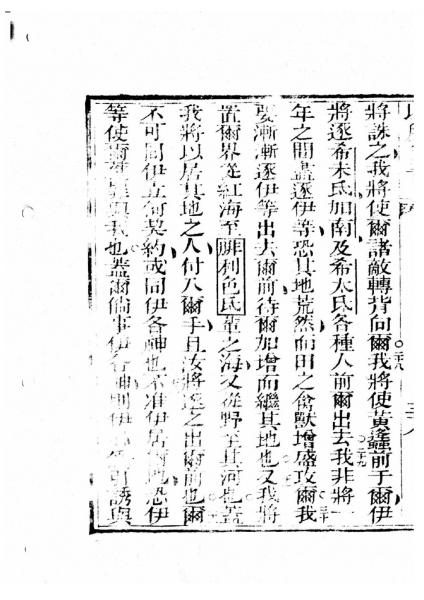 將誅之我將使爾諸敵轉背向爾。二八我將使黃蠭前于爾伊
將逐希未氏加南及希太氏各種人前爾出去二九我非將一
年之間盡逐伊等恐其地荒然而田之禽獸增盛攻爾三十我
要漸漸逐伊等出去爾前待爾加增而繼其地也又我將
置爾界從紅海至腓利色氏輩之海又從野至其河也蓋
我將以居其地之人付入爾手且汝將逐之出爾前也爾
不可同伊立何契約或同伊各神也不准伊居爾地恐伊
等使爾等罪與我也蓋爾倘事伊各神則伊引誘與